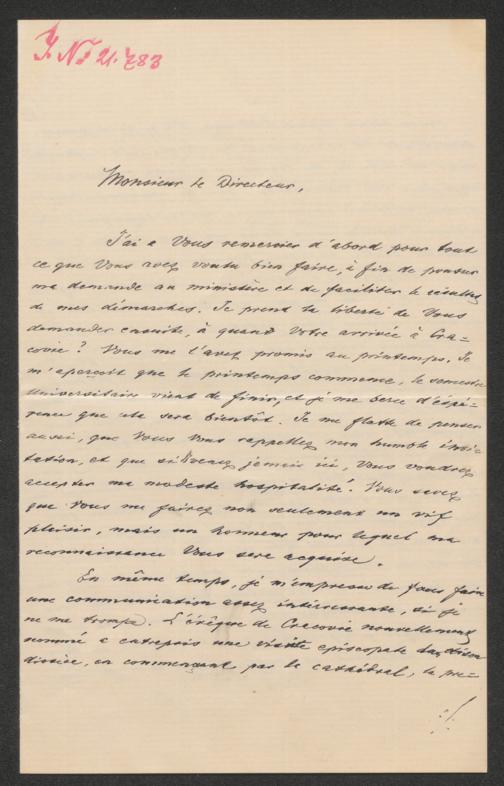 J. No 21.783
Monsieur le Directeur,
J'ai a Vous remercier d'abord pour tout
ce que Vous avez voulu bien faire, à fin de pousser
ma demande au ministère et de faciliter le résultat
de mes démarches. Je prend la liberté de Vous
demander ensuite, à quand Votre arrivée à Cra=
covie? Vous me l'avez promis au printemps. Je
m'aperçoit que le printemps commence, le semestre
universitaire vient de finir, et je me berce d'espé=
rence que cela sera bientôt. Je me flatte de penser
aussi, que Vous Vous rappellez mon humble invi=
tation, et que si Venez jamais ici, Vous voudrez
accepter ma modeste hospitalité. Vous savez
que Vous me fairez non seulement un vif
plaisir, mais un honneur pour lequel ma
reconnaissance Vous sera acquise.
En même temps, je m'empresse de Vous faire
une communication assez intéressante, si je
ne me trompe. L'évêque de Cracovie nouvellement
nommé a entrepris une visite episcopale dans son
diocèse, en commençant par la cathédral, la pre=
./.